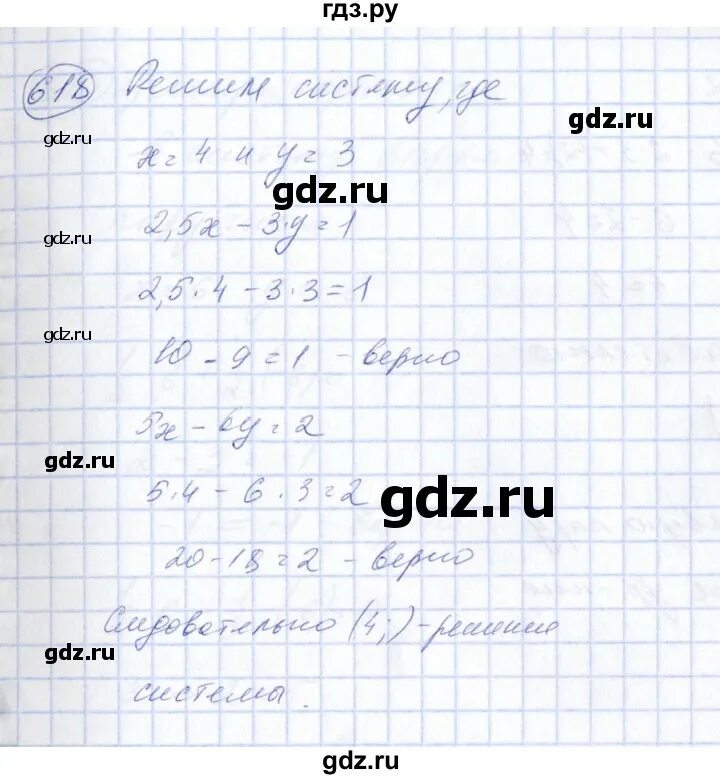 гдз.ру
618 Решим систему, где
gdz.ru
x = 4 и y = 3
gdz.ru
2,5x - 3·y = 1
gdz.ru
2,5·4 - 3·3 = 1
gdz.ru
10 - 9 = 1 - верно
5x - 6y = 2
gdz.ru
5·4 - 6·3 = 2
gdz.ru
20 - 18 = 2 - верно
gdz.ru
Следовательно (4;) - решение
gdz.ru
системы.
gdz.ru
gdz.ru